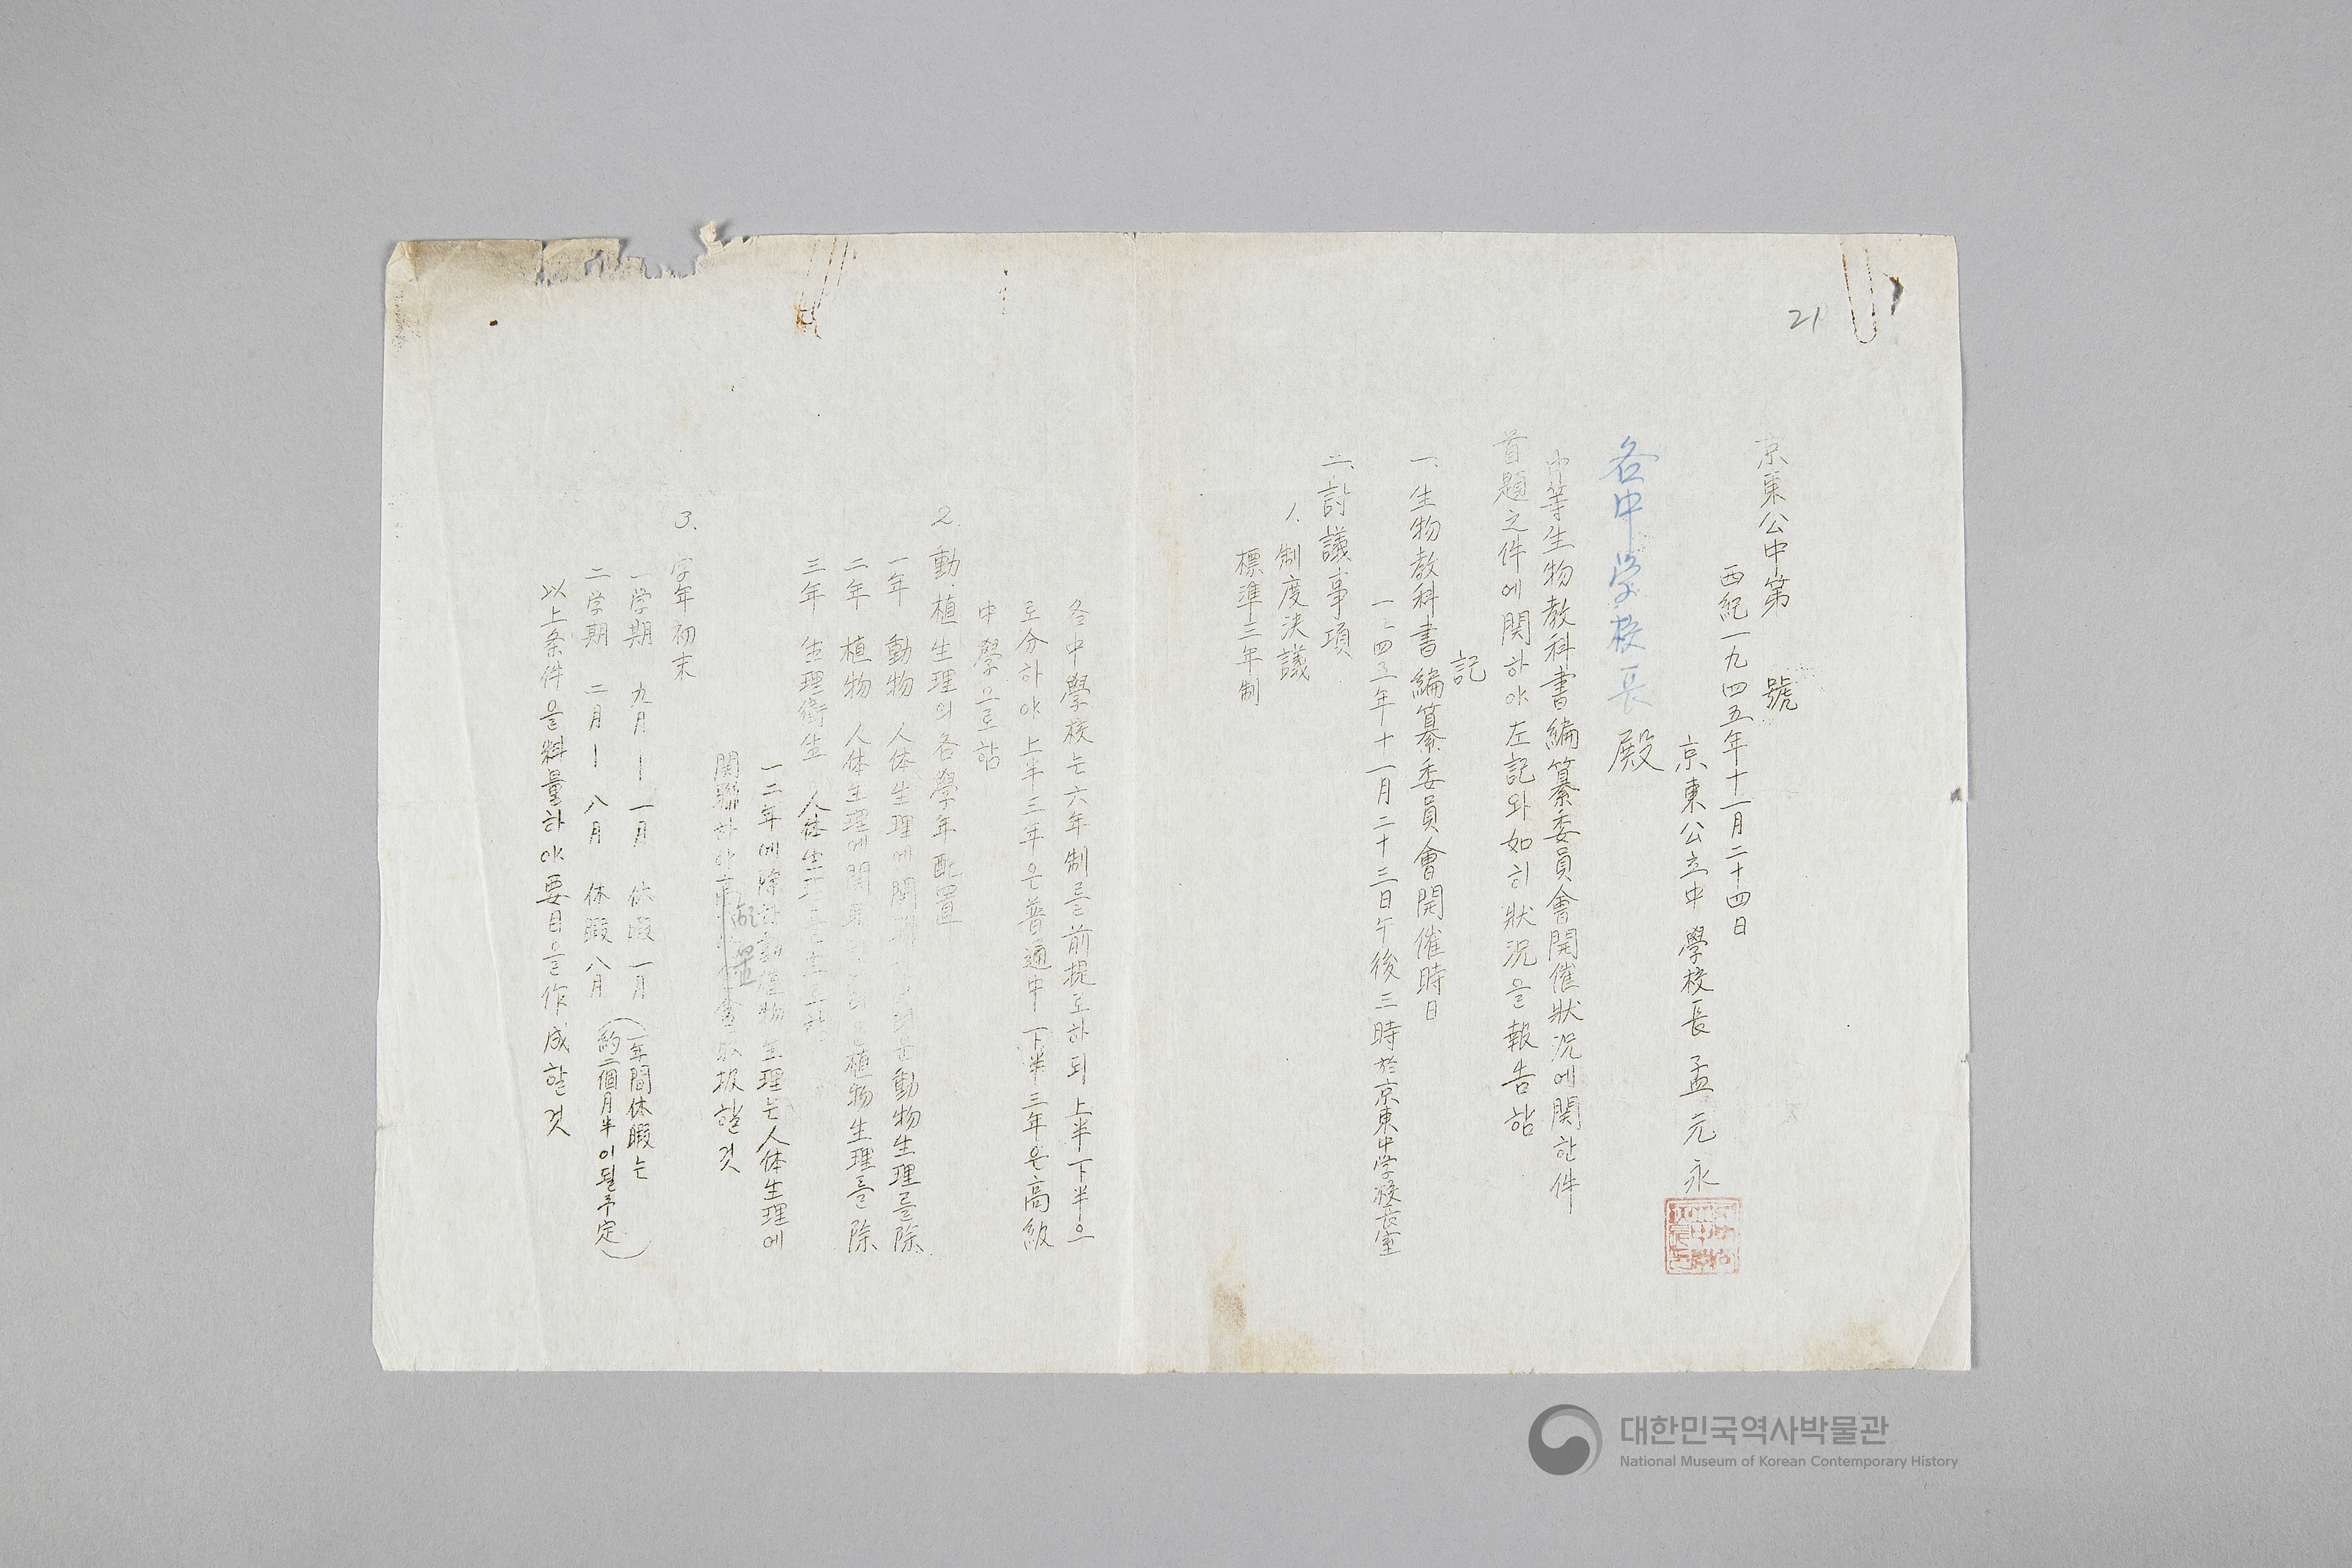 21
京東公中第 號
西紀一九四五年十一月二十四日
京東公立中學校長 孟元永
各中学校長 殿
中等生物敎科書編纂委員會開催狀况에関한件
首題之件에関하야左記와如히狀况을報告함
記
一、生物敎科書編纂委員會開催時日
一九四五年十一月二十三日午後三時於京東中学校長室
二、討議事項
1. 制度決議
標準三年制
各中學校는六年制를前提로하되上半下半으
로分하야上半三年은普通中下半三年은高級
中學으로함
2. 動.植生理의各學年配置
一年 動物 人体生理에関聯 動物生理를除
二年 植物 人体生理에関 植物生理를除
三年 生理衛生 人体生理
一二年에除한動植物生理는人体生理에
関聯하야 扱할것
3. 学年初末
一学期 九月ー一月 休暇 一月
二学期 二月ー八月 休暇 八月
(一年間休暇는
約二個月半이될予定)
以上条件을料量하야要目을作成할것
대한민국역사박물관
National Museum of Korean Contemporary History